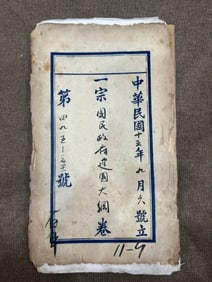 中華民國十五年九月六號立
一宗國民政府建國大綱卷
第四九五號
11-9